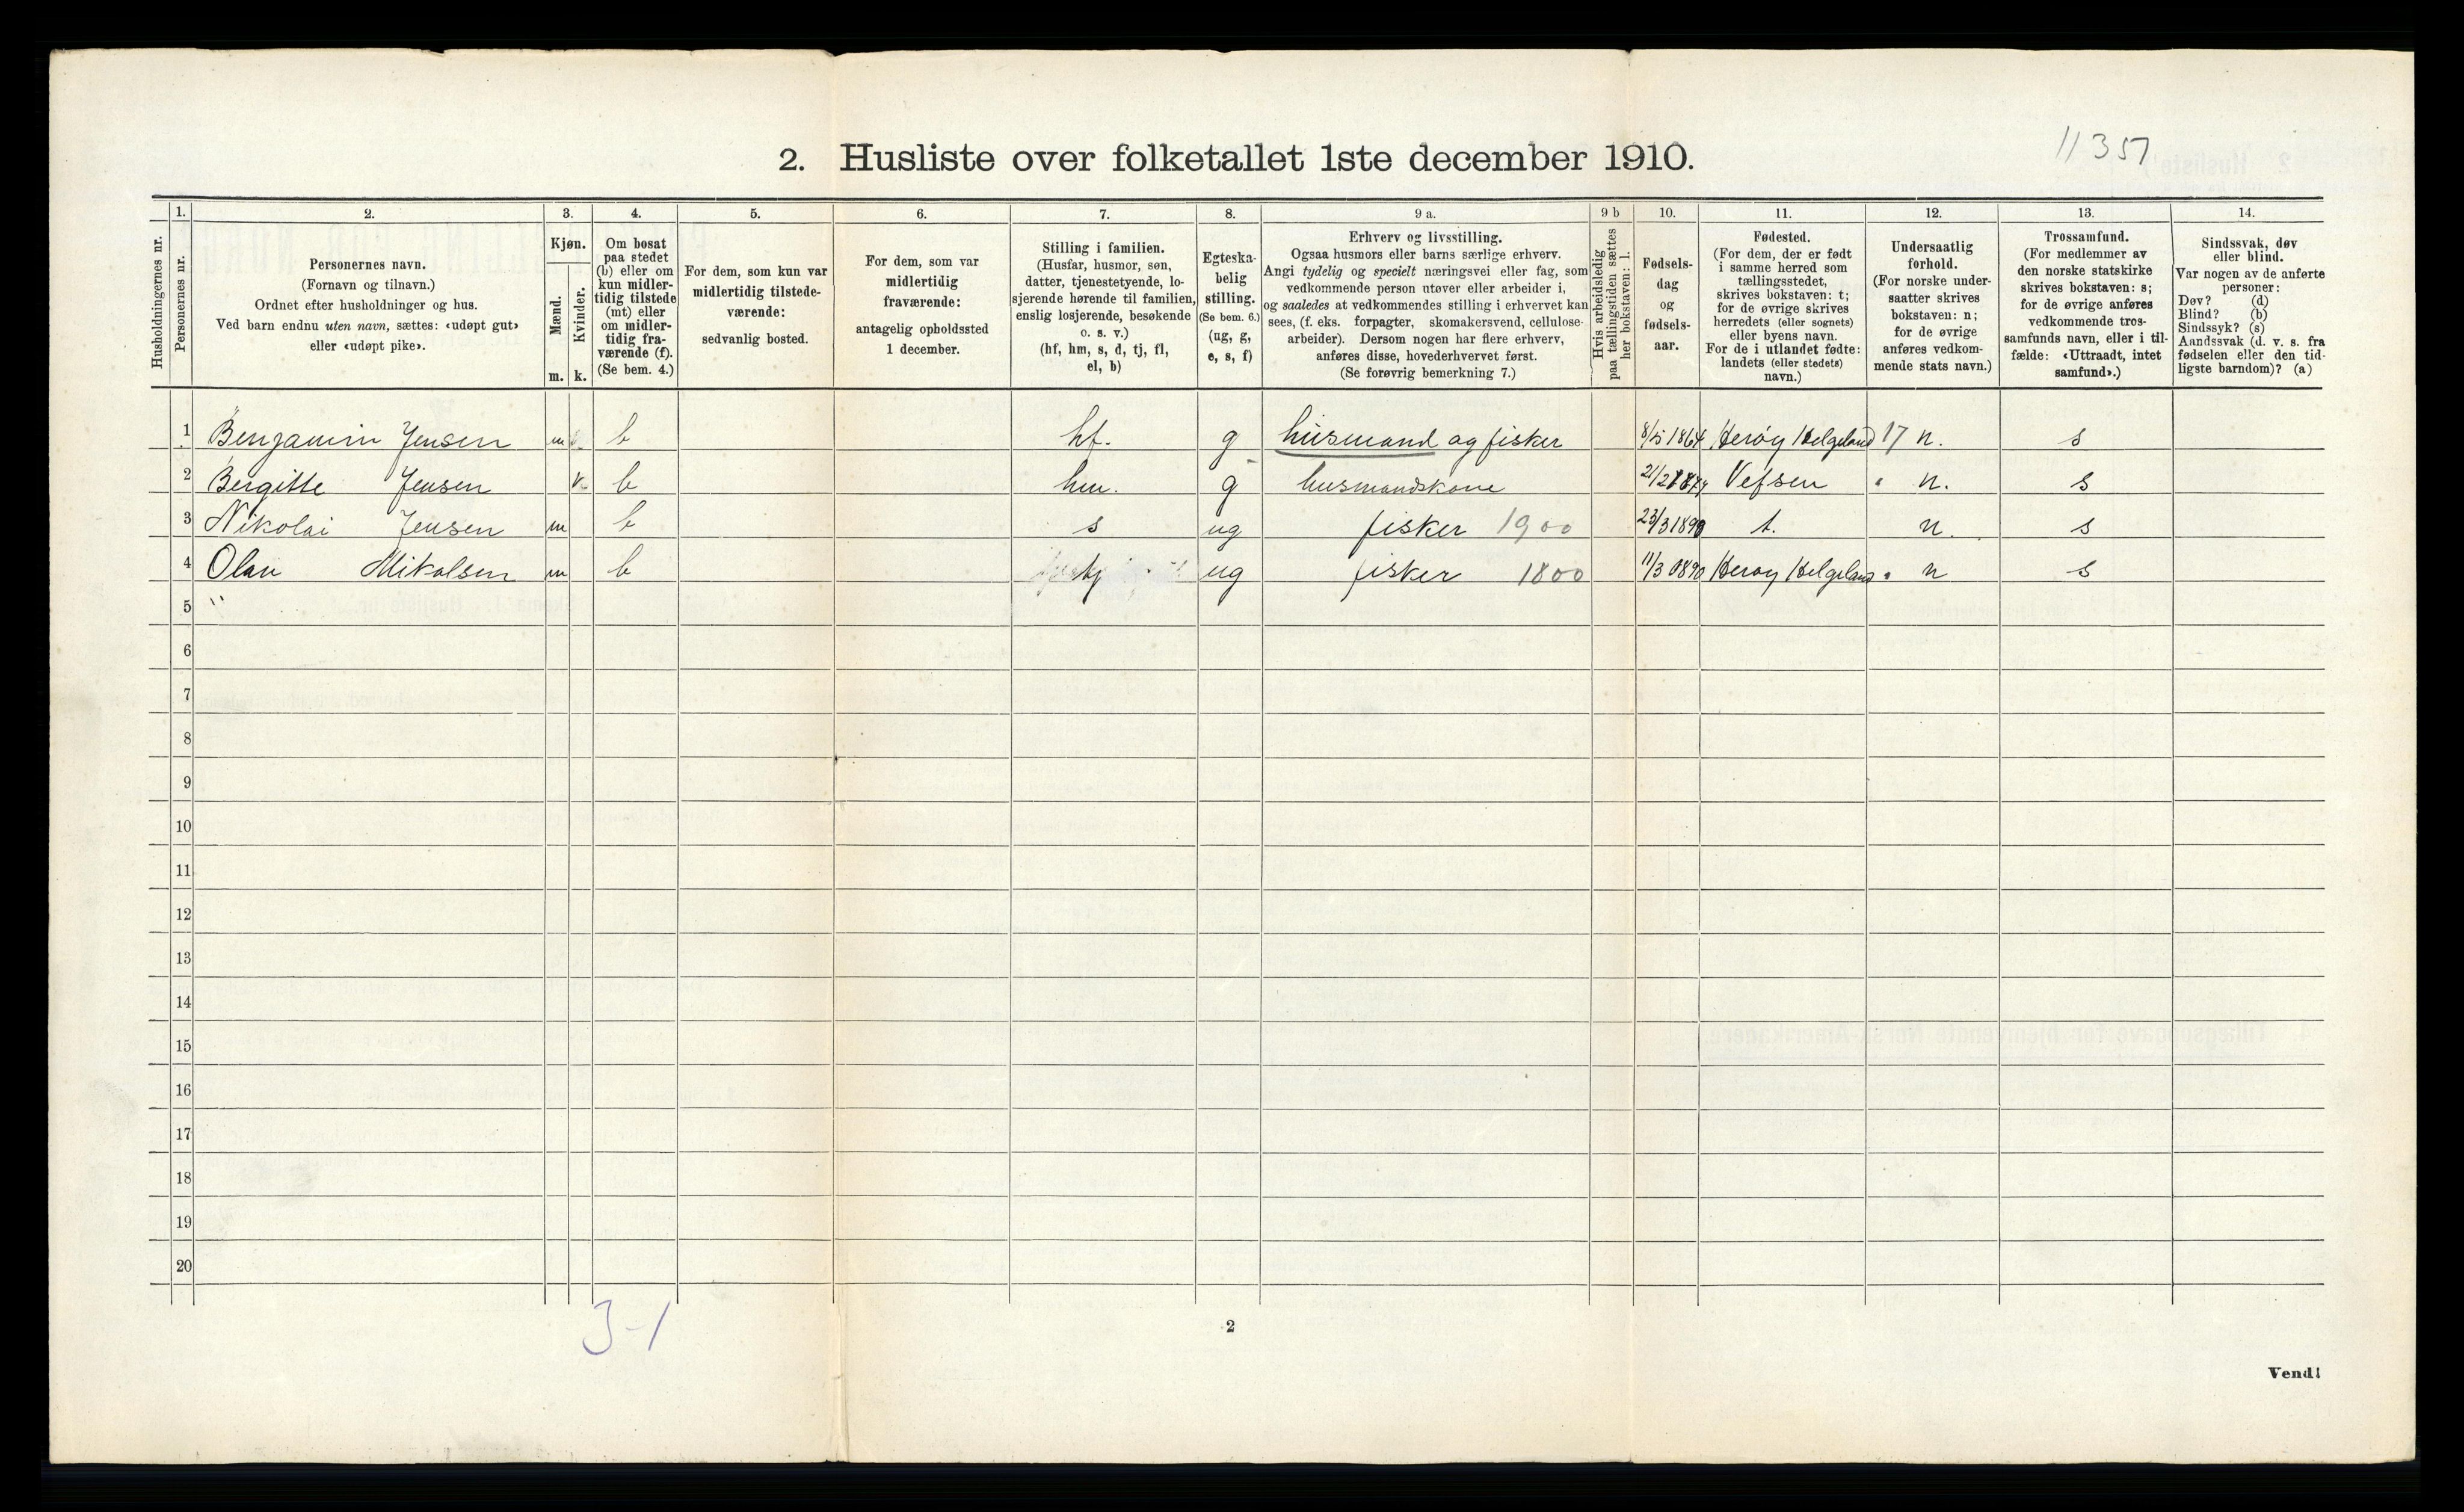 11357
2. Husliste over folketallet 1ste december 1910.
Husholdningernes nr.
1.
Personernes nr.
2.
Personernes navn.
(Fornavn og tilnavn.)
Ordnet efter husholdninger og hus.
Ved barn endnu uten navn, sættes: «udøpt gut»
eller «udøpt pike».
3.
Kjøn.
Mænd.
Kvinder.
m. k.
4.
Om bosat
paa stedet
(b) eller om
kun midler-
tidig tilstede
(mt) eller
om midler-
tidig fra-
værende (f).
(Se bem. 4.)
5.
For dem, som kun var
midlertidig tilstede-
værende:
sedvanlig bosted.
6.
For dem, som var
midlertidig
fraværende:
antagelig opholdssted
1 december.
7.
Stilling i familien.
(Husfar, husmor, søn,
datter, tjenestetyende, lo-
sjerende hørende til familien,
enslig losjerende, besøkende
o. s. v.)
(hf, hm, s, d, tj, fl,
el, b)
8.
Egteska-
belig
stilling.
(Se bem. 6.)
(ug, g,
e, s, f)
9 a.
Erhverv og livsstilling.
Ogsaa husmors eller barns særlige erhverv.
Angi tydelig og specielt næringsvei eller fag, som
vedkommende person utøver eller arbeider i,
og saaledes at vedkommendes stilling i erhvervet kan
sees, (f. eks. forpagter, skomakersvend, cellulose-
arbeider). Dersom nogen har flere erhverv,
anføres disse, hovederhvervet først.
(Se forøvrig bemerkning 7.)
9 b
Hvis arbeidsledig
paa tællingstiden sættes
her bokstaven: l.
10.
Fødsels-
dag
og
fødsels-
aar.
11.
Fødested.
(For dem, der er født
i samme herred som
tællingsstedet,
skrives bokstaven: t;
for de øvrige skrives
herredets (eller sognets)
eller byens navn.
For de i utlandet fødte:
landets (eller stedets)
navn.)
12.
Undersaatlig
forhold.
(For norske under-
saatter skrives
bokstaven: n;
for de øvrige
anføres vedkom-
mende stats navn.)
13.
Trossamfund.
(For medlemmer av
den norske statskirke
skrives bokstaven: s;
for de øvrige anføres
vedkommende tros-
samfunds navn, eller i til-
fælde: «Uttraadt, intet
samfund».)
14.
Sindssvak, døv
eller blind.
Var nogen av de anførte
personer:
Døv? (d)
Blind? (b)
Sindssyk? (s)
Aandssvak (d. v. s. fra
fødselen eller den tid-
ligste barndom)? (a)
1 Benjamin Jensen m b hf. g husmand og fisker 8/5 1864 Herøy Helgeland 17 n. s
2 Bergitte Jensen k b hm. g husmandskone Vefsen " n. s
3 Nikolai Jensen m b s ug fisker 1900 23/3 1890 t. n. s
4 Olav Mikalsen m b tj ug fisker 1800 11/3 Herøy Helgeland " n s
5 "
6
7
8
9
10
11
12
13
14
15
16
17
18
19
20
3-1
2
Vend!